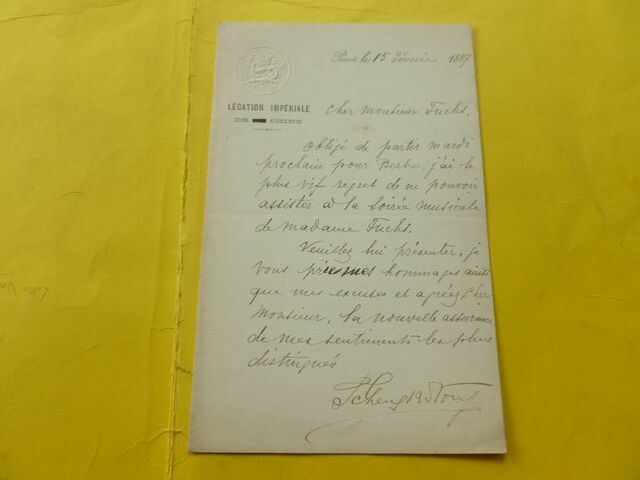 Paris, le 15 Février 1887
LÉGATION IMPÉRIALE
DE CHINE
Cher Monsieur Fuchs,
obligé de partir mardi
prochain pour Berlin, j'ai le
plus vif regret de ne pouvoir
assister à la soirée musicale
de madame Fuchs.
Veuillez lui présenter, je
vous prie mes hommages ainsi
que mes excuses et agréez Cher
Monsieur, la nouvelle assurance
de mes sentiments les plus
distingués